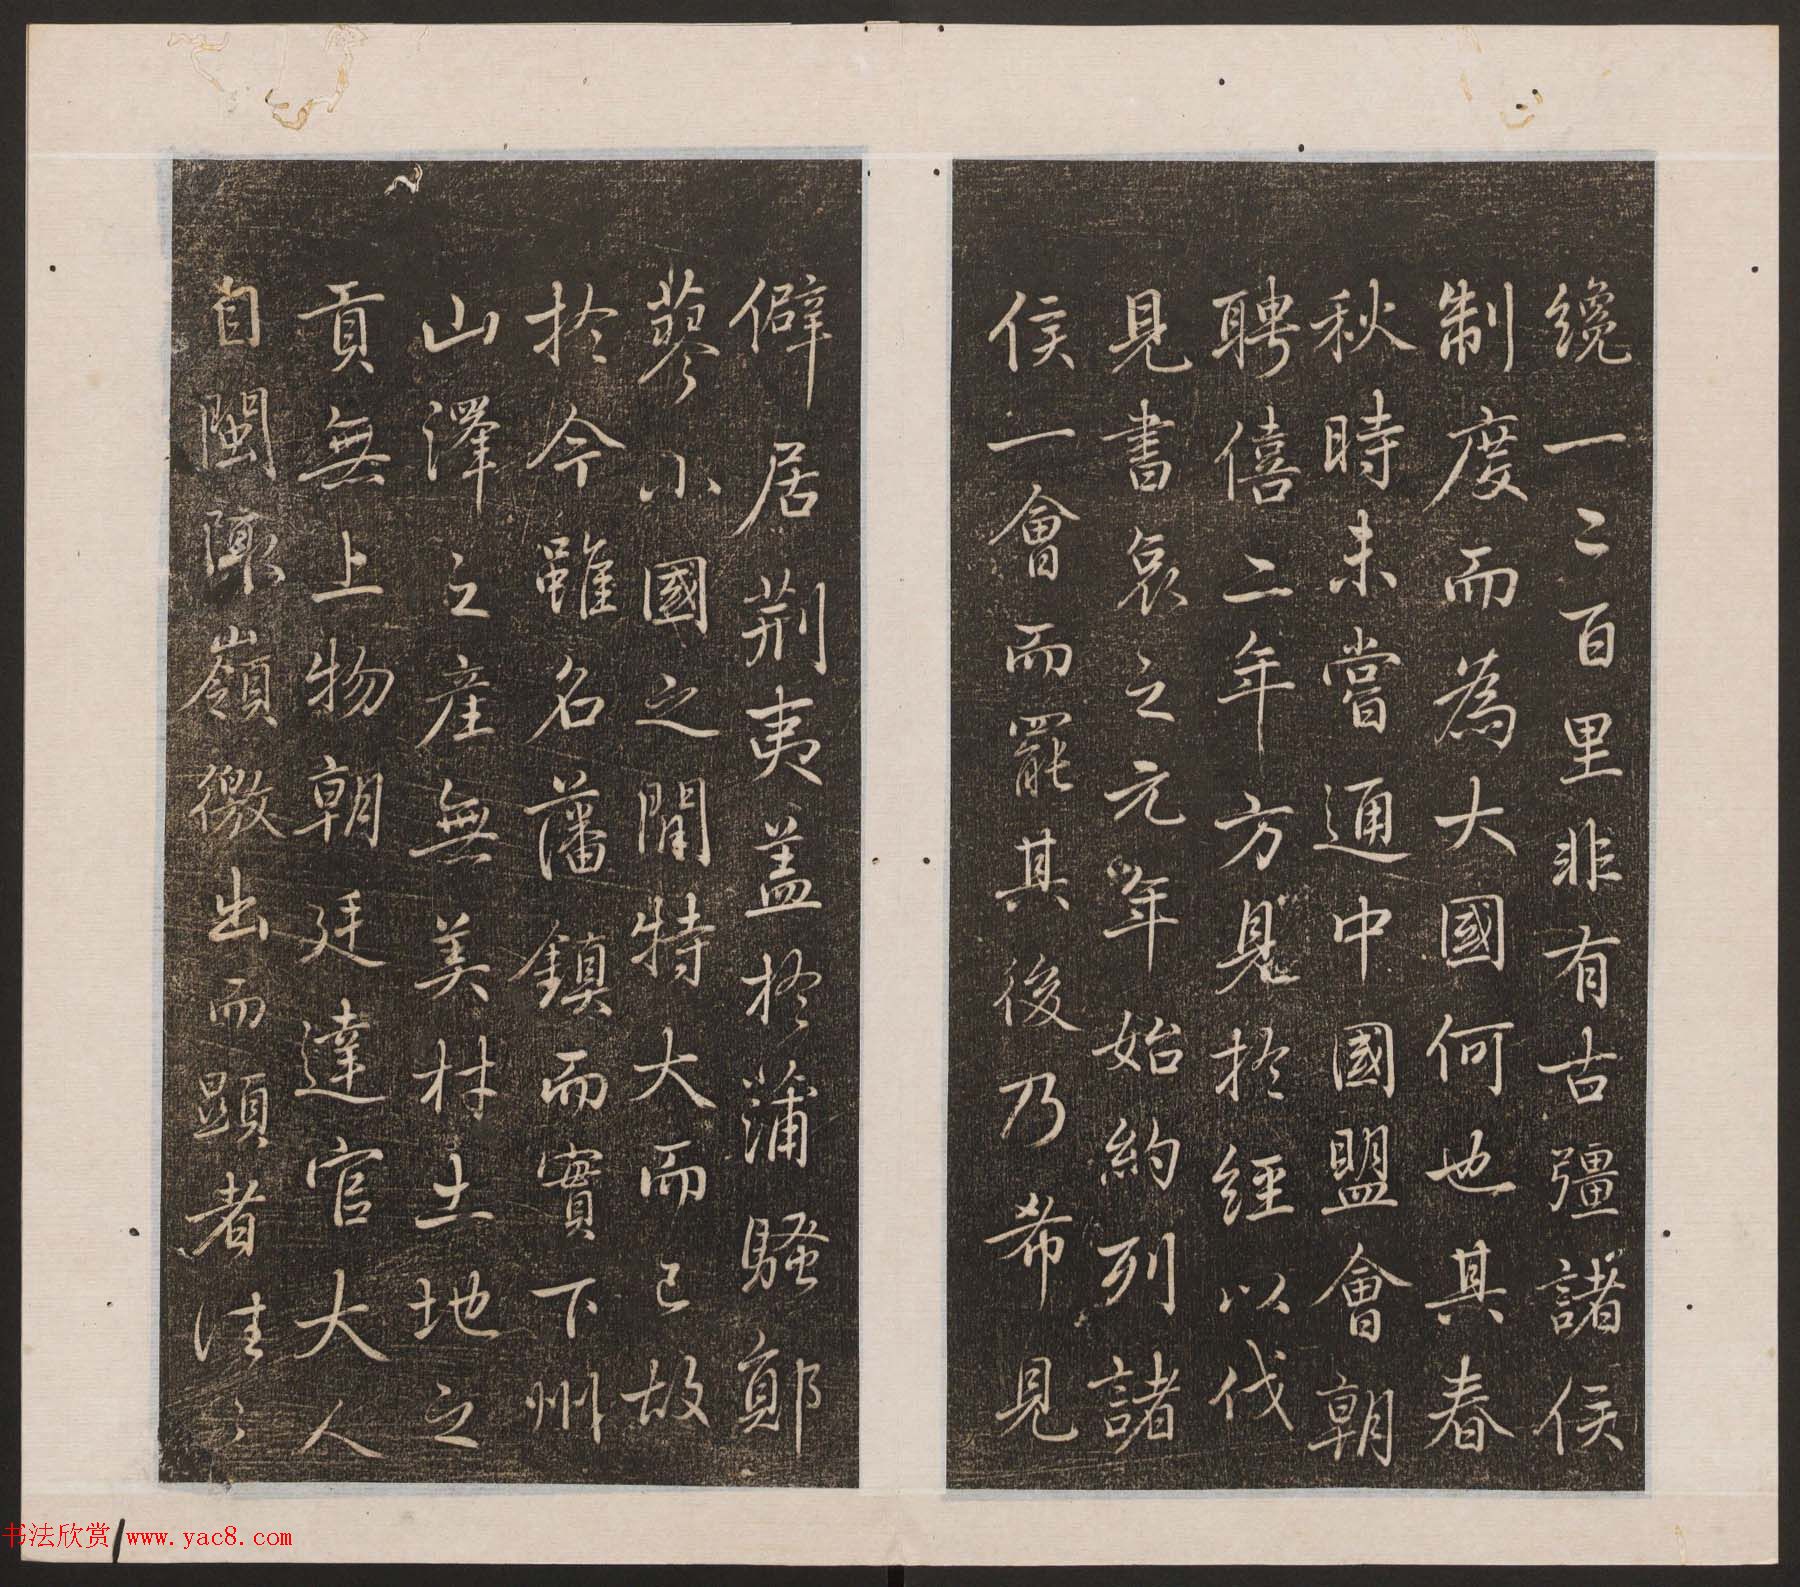 纔一二百里非有古彊諸侯
制度而為大國何也其春
秋時未嘗通中國盟會朝
聘僖二年方見於經以伐
見書哀之元年始約列諸
侯一會而罷其後乃希見
僻居荊夷盖於蒲騷鄖
蓼小國之間特大而已故
於今雖名藩鎮而實下州
山澤之產無美材土地之
貢無上物朝廷達官大人
自閩陬嶺徼出而顯者往々
书法欣赏 www.yac8.com